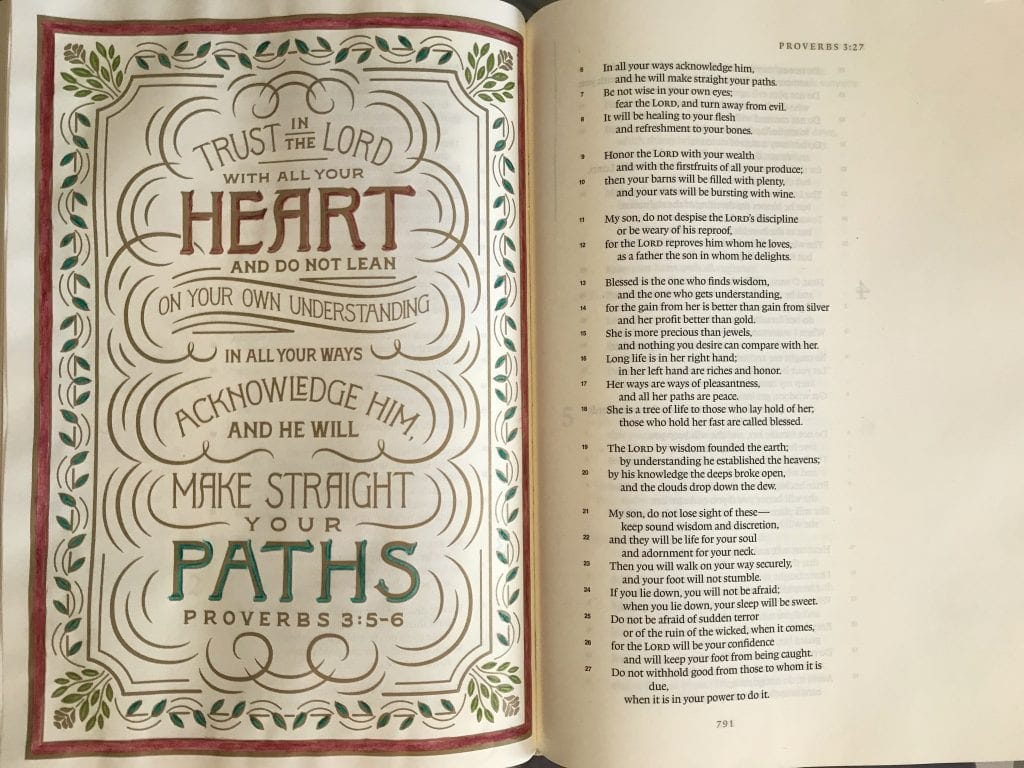 TRUST IN THE LORD
WITH ALL YOUR
HEART
AND DO NOT LEAN
ON YOUR OWN UNDERSTANDING
IN ALL YOUR WAYS
ACKNOWLEDGE HIM,
AND HE WILL
MAKE STRAIGHT
YOUR
PATHS
PROVERBS 3:5-6
PROVERBS 3:27
6 In all your ways acknowledge him,
and he will make straight your paths.
7 Be not wise in your own eyes;
fear the LORD, and turn away from evil.
8 It will be healing to your flesh
and refreshment to your bones.
9 Honor the LORD with your wealth
and with the firstfruits of all your produce;
10 then your barns will be filled with plenty,
and your vats will be bursting with wine.
11 My son, do not despise the LORD's discipline
or be weary of his reproof,
12 for the LORD reproves him whom he loves,
as a father the son in whom he delights.
13 Blessed is the one who finds wisdom,
and the one who gets understanding,
14 for the gain from her is better than gain from silver
and her profit better than gold.
15 She is more precious than jewels,
and nothing you desire can compare with her.
16 Long life is in her right hand;
in her left hand are riches and honor.
17 Her ways are ways of pleasantness,
and all her paths are peace.
18 She is a tree of life to those who lay hold of her;
those who hold her fast are called blessed.
19 The LORD by wisdom founded the earth;
by understanding he established the heavens;
20 by his knowledge the deeps broke open,
and the clouds drop down the dew.
21 My son, do not lose sight of these—
keep sound wisdom and discretion,
22 and they will be life for your soul
and adornment for your neck.
23 Then you will walk on your way securely,
and your foot will not stumble.
24 If you lie down, you will not be afraid;
when you lie down, your sleep will be sweet.
25 Do not be afraid of sudden terror
or of the ruin of the wicked, when it comes,
26 for the LORD will be your confidence
and will keep your foot from being caught.
27 Do not withhold good from those to whom it is
due,
when it is in your power to do it.
791